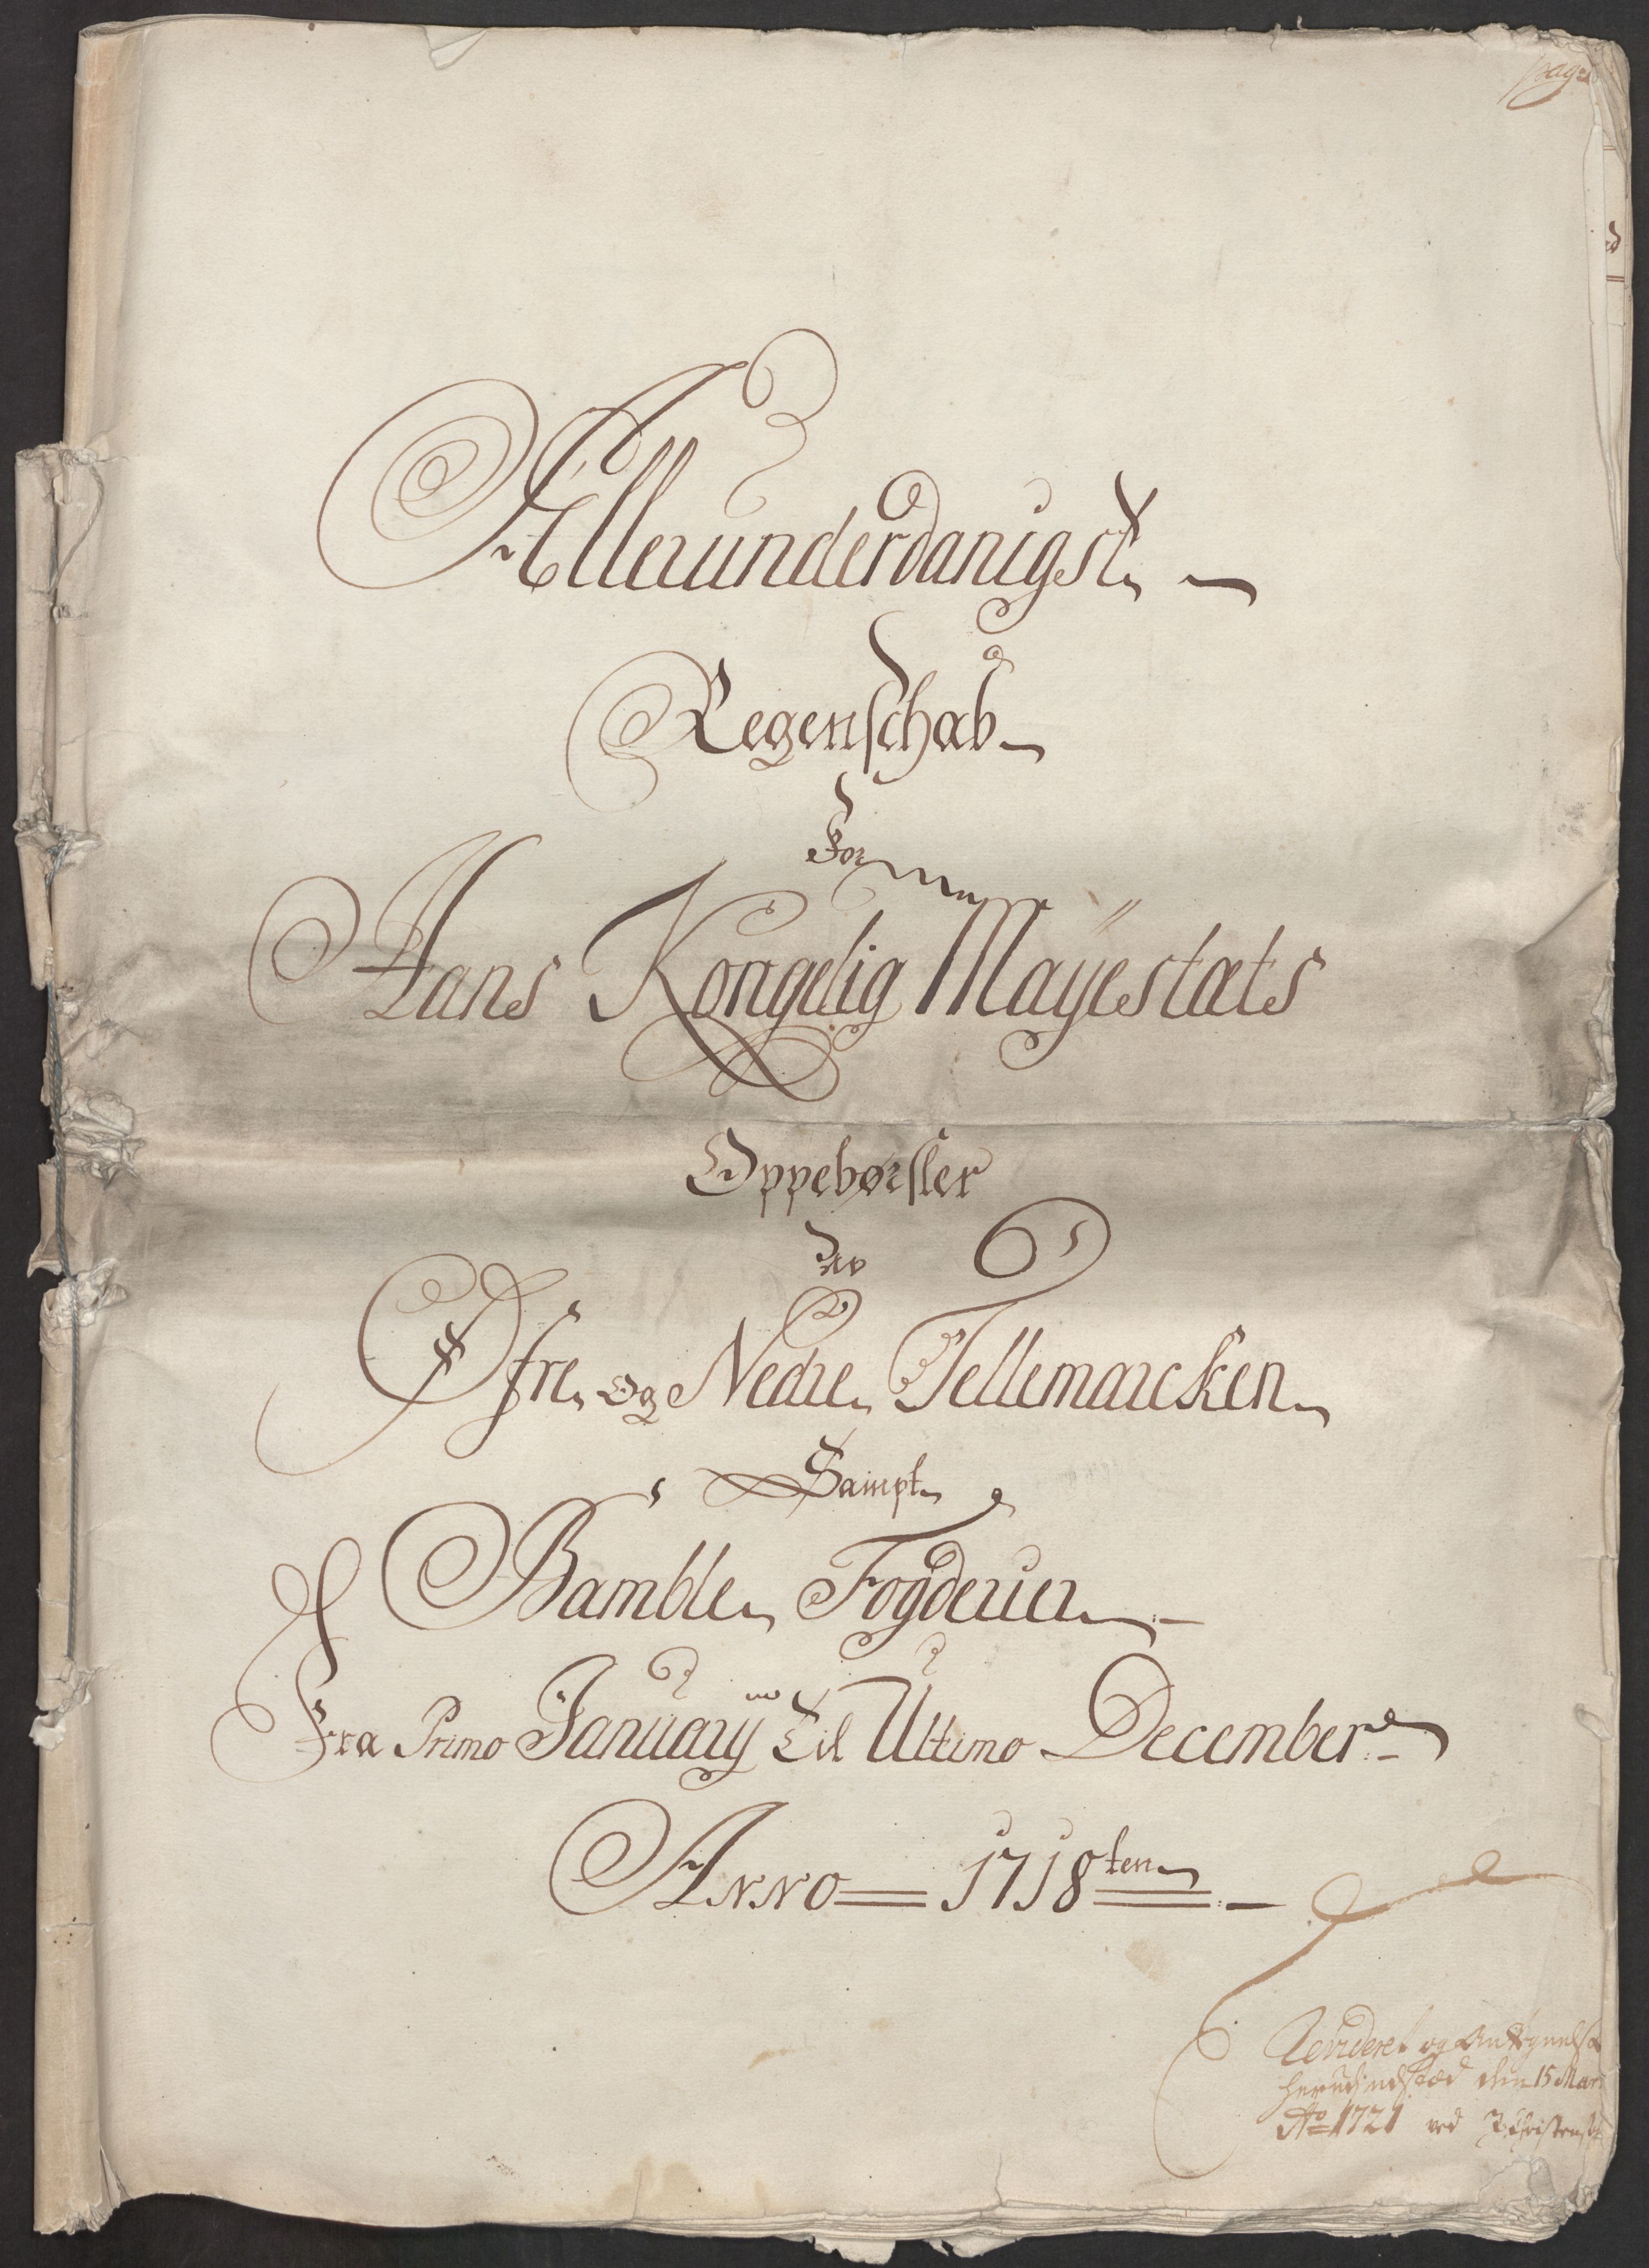 pag
Allerunderdanigst
Regenschab
For
Hans Kongelig Mayestæts
Oppebørsler
Av
Øfre og Nedre Tellemarcken
Sampt
Bamble Fogderier
Fra Primo January til Ultimo December
Anno 1718ten
Revideret og
den 15 Mar
Ao 1721 ved